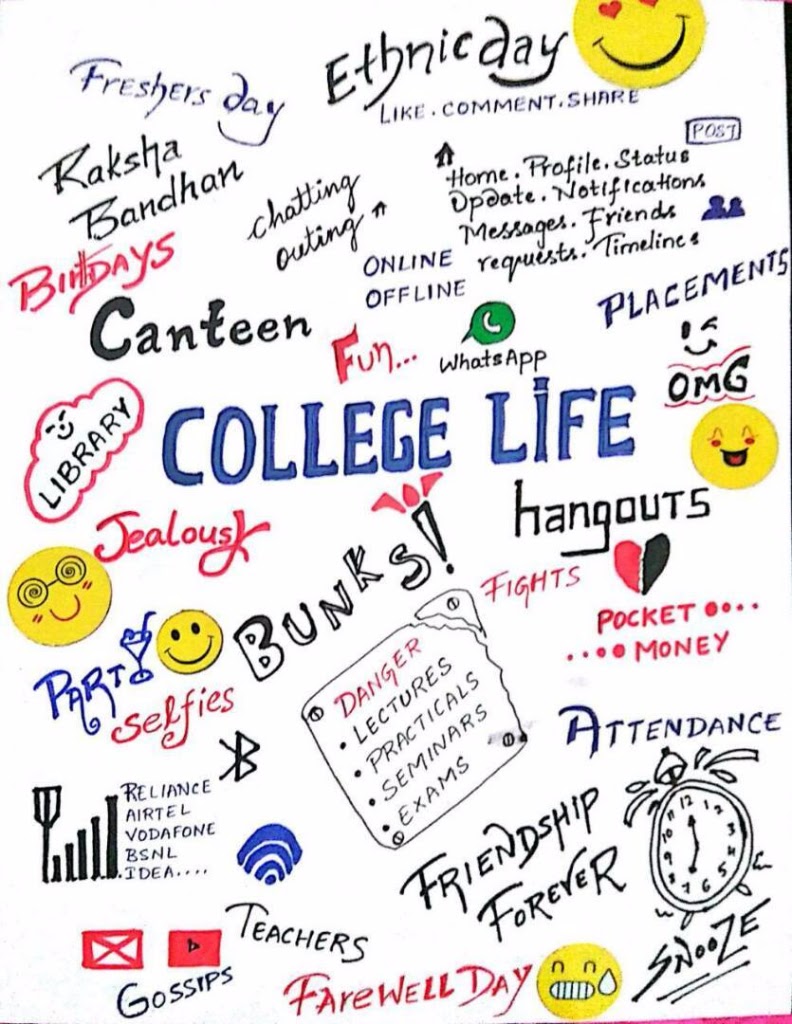 Ethnic day
Freshers day
LIKE . COMMENT . SHARE
POST
Raksha
Bandhan
chatting
outing
Home . Profile . Status
Update . Notifications
Messages . Friends
requests . Timelines
BirthDAYS
ONLINE
OFFLINE
PLACEMENTS
Canteen
Fun...
WhatsApp
OMG
LIBRARY
COLLEGE LiFE
hangouts
Jealousy
BUNKS!
FIGHTS
POCKET
MONEY
PARTY
selfies
DANGER
• LECTURES
• PRACTICALS
• SEMINARS
• EXAMS
ATTENDANCE
RELIANCE
AIRTEL
VODAFONE
BSNL
IDEA....
FRIENDSHIP
FOREVER
12
1
2
3
4
5
6
7
8
9
10
11
SNOOZE
TEACHERS
GOSSIPS
FAREWELL DAY